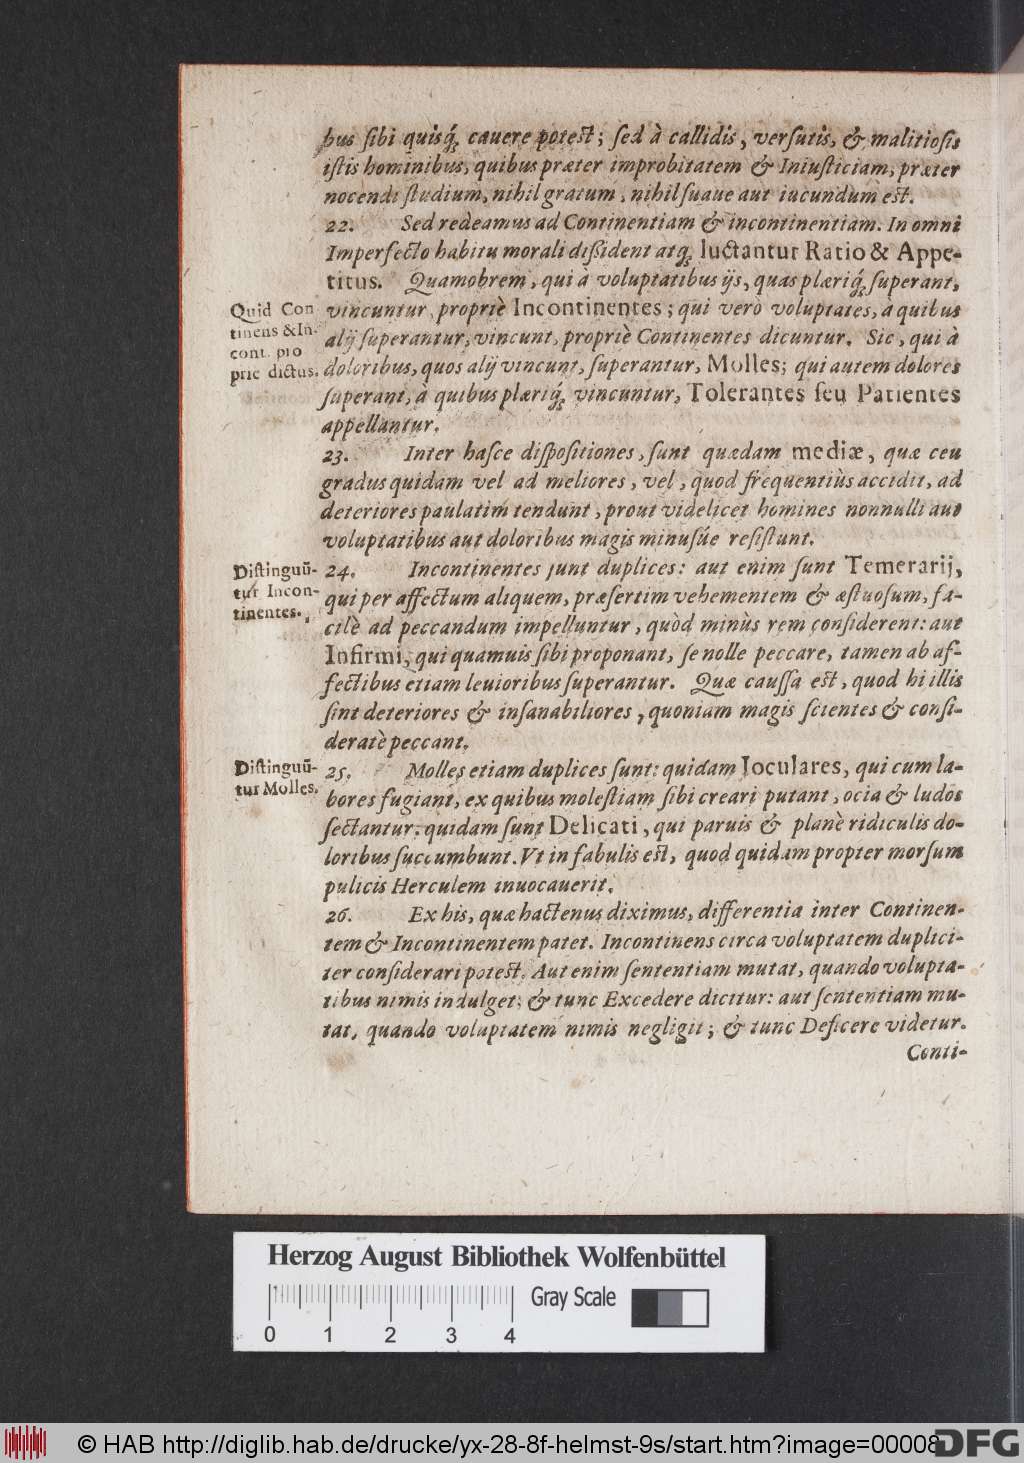 bus sibi quisq́; cauere potest; sed à callidis, versutis, & malitiosis
istis hominibus, quibus præter improbitatem & Iniusticiam, præter
nocendi studium, nihil gratum, nihil suaue aut iucundum est.
22. Sed redeamus ad Continentiam & incontinentiam. In omni
Imperfecto habitu morali dißident atq́; luctantur Ratio & Appe-
titus. Quamobrem, qui à voluptatibus ijs, quas plæriq́; superant,
Quid Con
tinens & In-
cont. pro
prie dictus.
vincuntur, propriè Incontinentes; qui verò voluptates, a quibus
alij superantur, vincunt, propriè Continentes dicuntur. Sic, qui à
doloribus, quos alij vincunt, superantur, Molles; qui autem dolores
superant, à quibus plæriq́; vincuntur, Tolerantes seu Patientes
appellantur.
23. Inter hasce dispositiones, sunt quædam mediæ, quæ ceu
gradus quidam vel ad meliores, vel, quod frequentiùs accidit, ad
deteriores paulatim tendunt, prout videlicet homines nonnulli aut
voluptatibus aut doloribus magis minusúe resistunt.
Distinguũ-
tur Incon-
tinentes.
24. Incontinentes sunt duplices: aut enim sunt Temerarij,
qui per affectum aliquem, præsertim vehementem & æstuosum, fa-
cilè ad peccandum impelluntur, quòd minùs rem considerent: aut
Infirmi, qui quamuis sibi proponant, se nolle peccare, tamen ab af-
fectibus etiam leuioribus superantur. Quæ caussa est, quod hi illis
sint deteriores & insanabiliores, quoniam magis scientes & consi-
deratè peccant.
Distinguũ-
tur Molles.
25. Molles etiam duplices sunt: quidam Ioculares, qui cum la-
bores fugiant, ex quibus molestiam sibi creari putant, ocia & ludos
sectantur: quidam sunt Delicati, qui paruis & planè ridiculis do-
loribus succumbunt. Vt in fabulis est, quod quidam propter morsum
pulicis Herculem inuocauerit.
26. Ex his, quæ hactenus diximus, differentia inter Continen-
tem & Incontinentem patet. Incontinens circa voluptatem duplici-
ter considerari potest. Aut enim sententiam mutat, quando volupta-
tibus nimis indulget; & tunc Excedere dicitur: aut sententiam mu-
tat, quando voluptatem nimis negligit; & tunc Deficere videtur.
Conti-
Herzog August Bibliothek Wolfenbüttel
Gray Scale
0 1 2 3 4
© HAB http://diglib.hab.de/drucke/yx-28-8f-helmst-9s/start.htm?image=00008
DFG